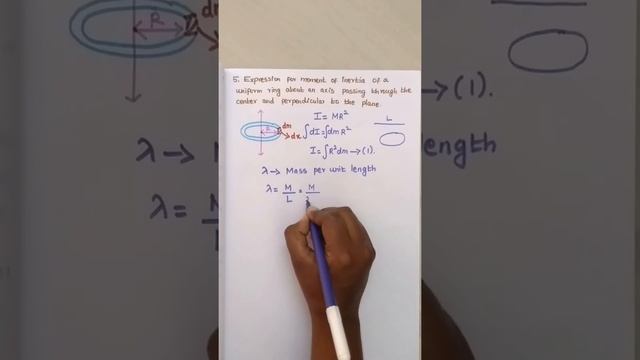 5. Expression for moment of Inertia of a
uniform ring about an axis passing through the
center and perpendicular to the plane.
I = MR²
∫dI = ∫dm R²
I = ∫R²dm → (1).
R
dm
dx
L
λ → Mass per unit length
λ = M/L = M/